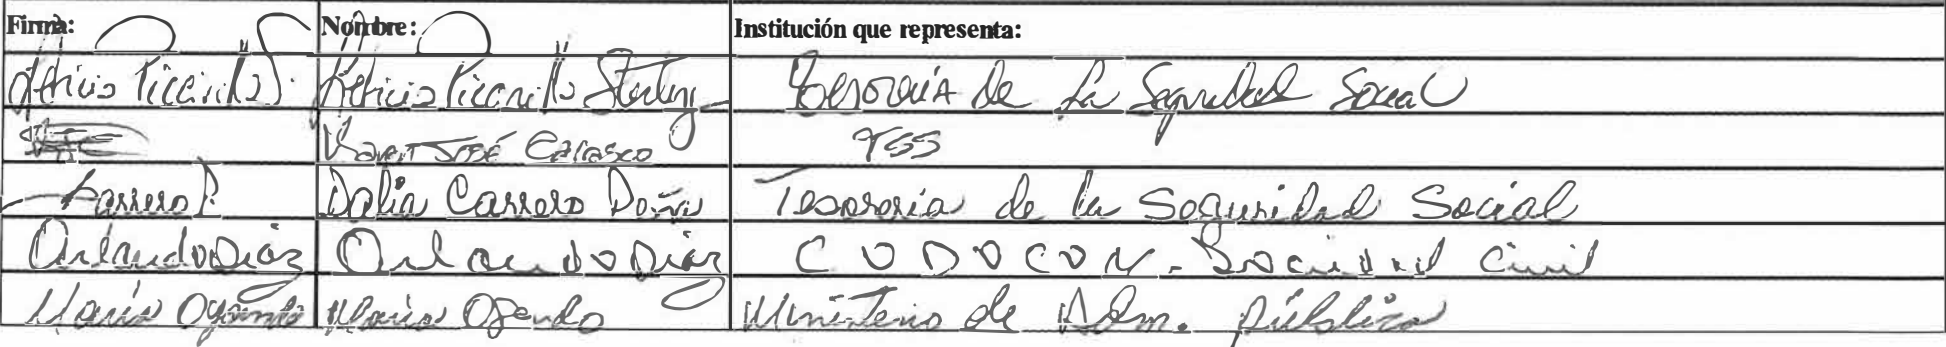 Firma: Nombre: Institución que representa:
Piccirillo Sterling Tesorería de la Seguridad Social
José Carrasco TSS
Carrero P. Dalia Carrero Tesoreria de la Seguridad Social
Orlando Diaz Orlando Diaz CODOCON - Sociedad Civil
María Ogando María Ogando Ministerio de Adm. pública